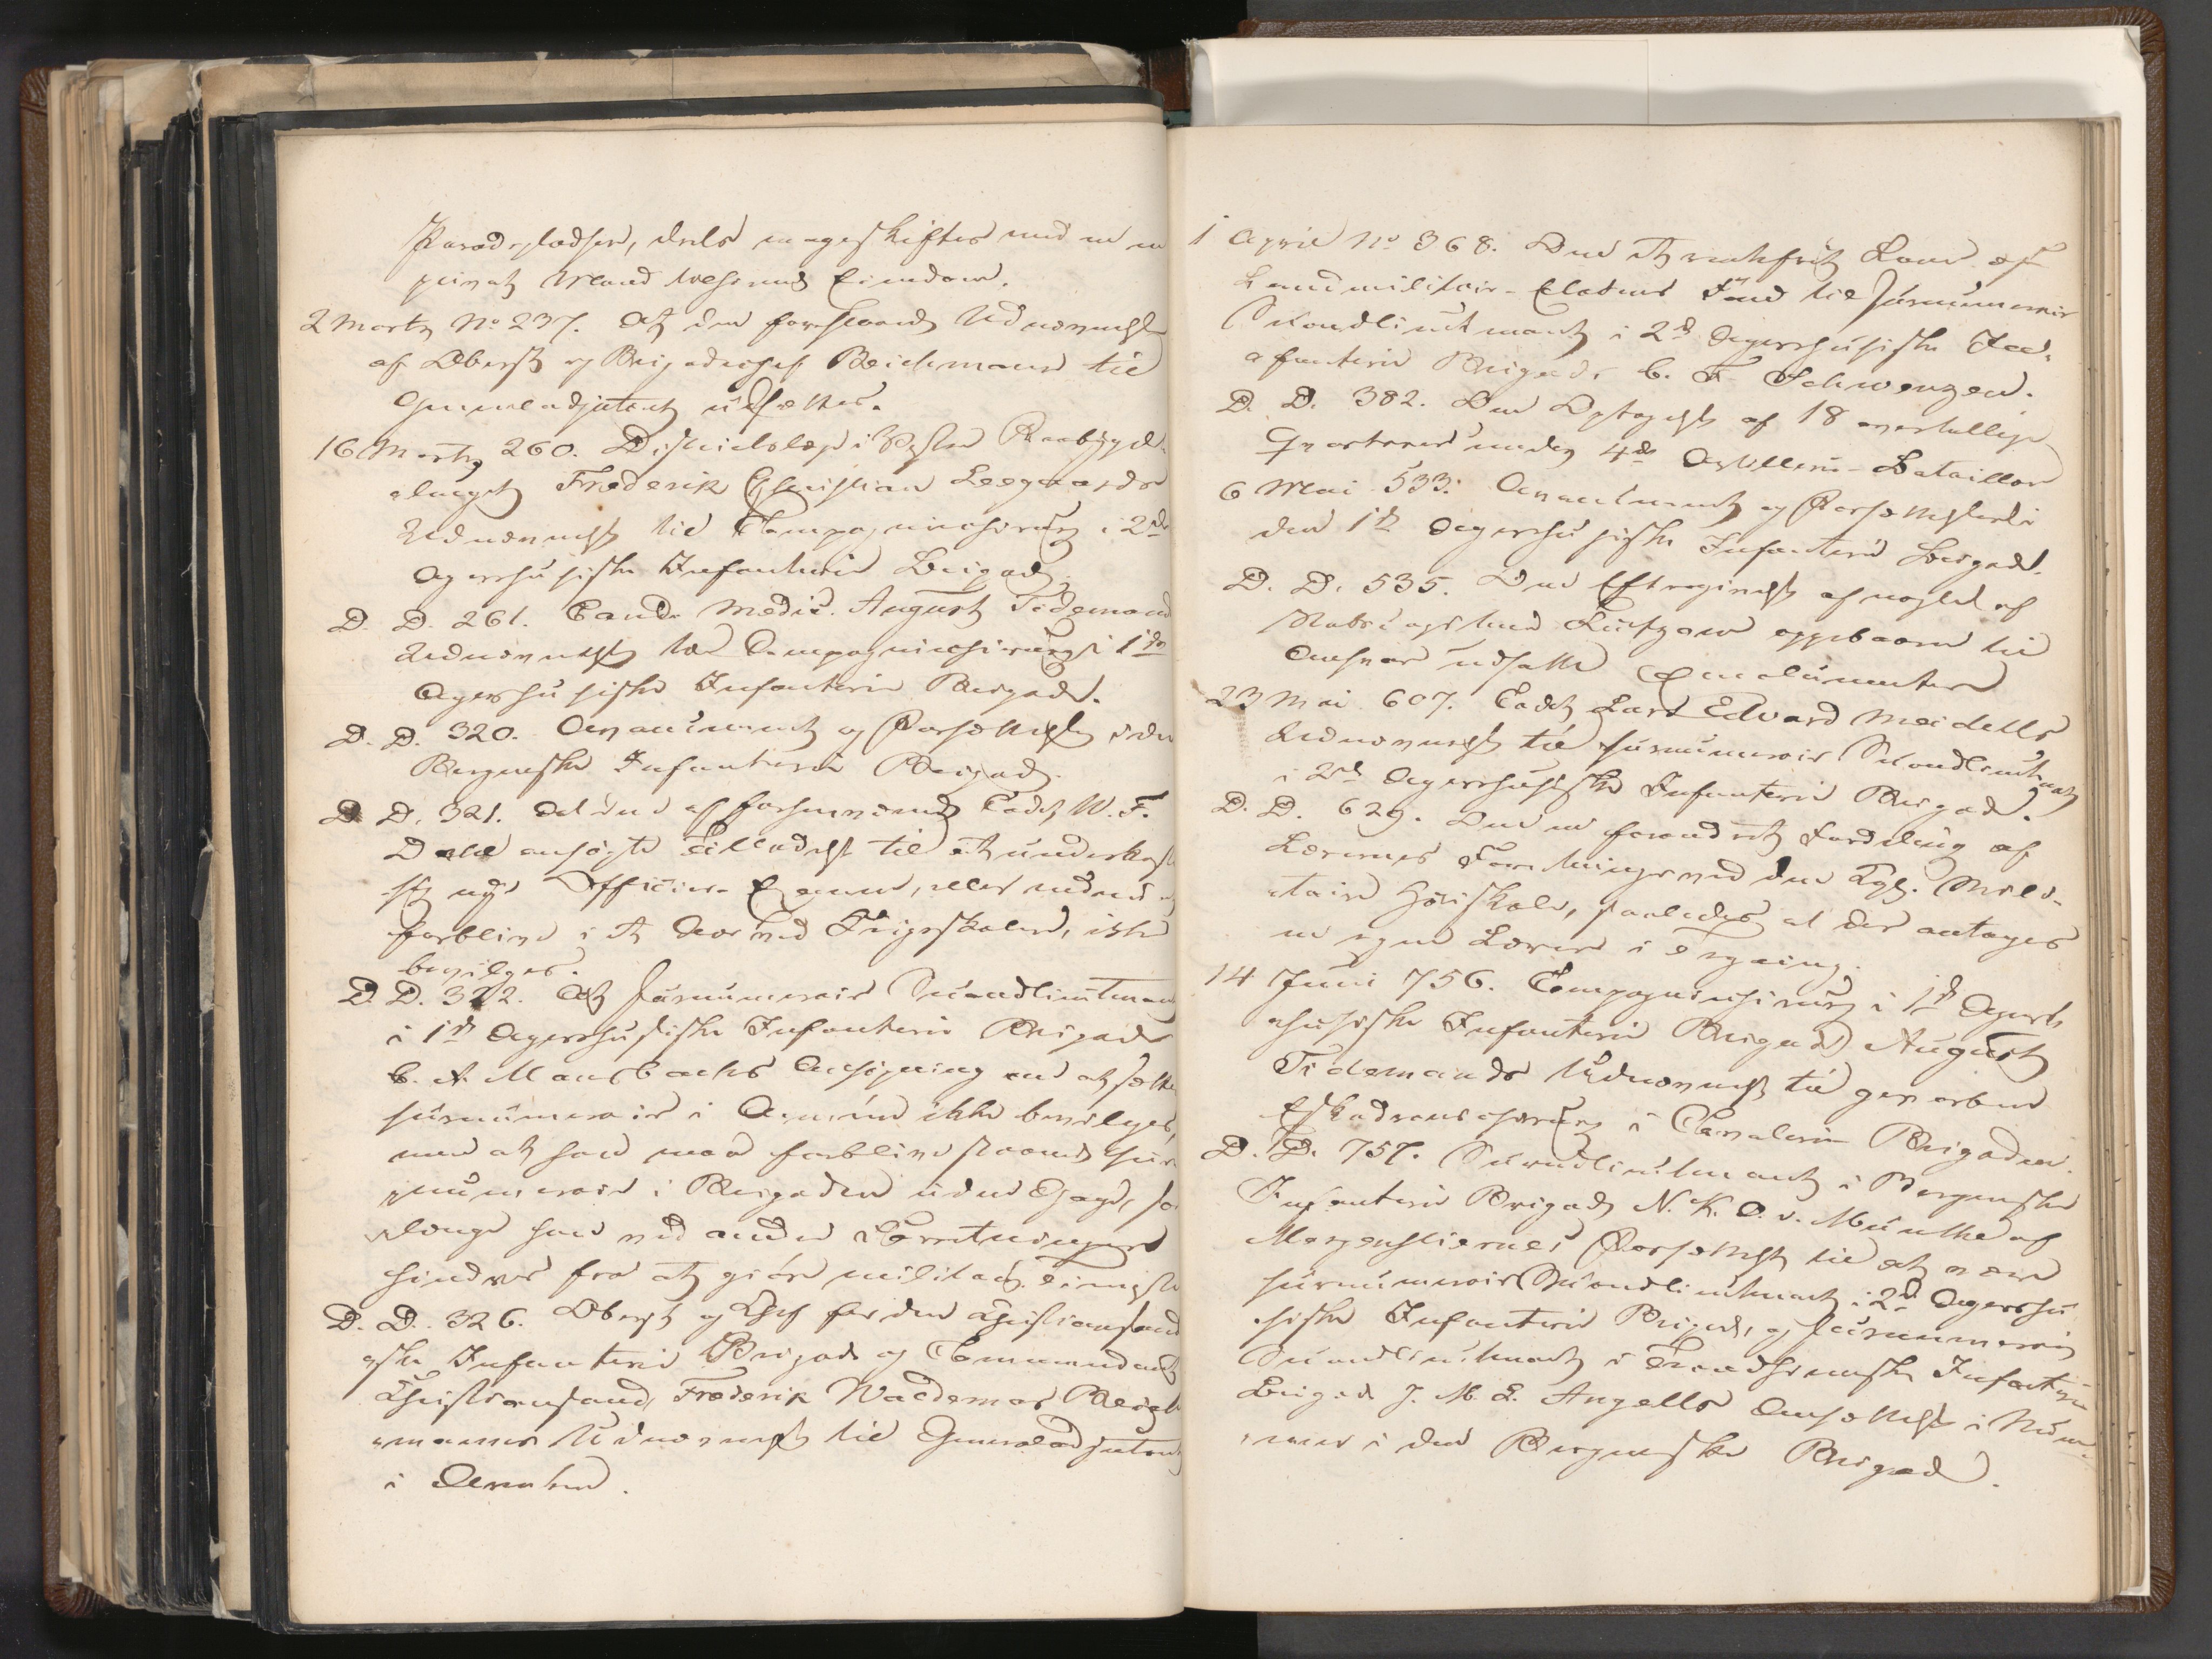 Paradepladsen, deels mageskiftes med en en
privat Mand tilhørende Eiendom.
2 Marts No 237. At den foreslaaede Udnævnelse
af Oberst og Brigadechef Beichmann til
Generaladjutant udsættes.
16 Marts 260. Districtslæge i Vestre Raabygde-
laget Frederik Christian Leegaards
Udnævnelse til Compagniechirurg i 2den
Agershusiske Infanterie Brigade.
D. D. 261. Cand. Medic. August Tidemand
Udnævnelse til Compagniechirurg i 1ste
Agershusiske Infanterie Brigade.
D. D. 320. Avancement og Forsættelse i den
Bergenske Infanterie Brigade.
D. D. 321. At den af forhenværende Cadet W. F.
Dahl ansøgte Tilladelse til at underkaste
sig nye Officiers Examen, eller endnu at
forblive i et Aar ved Krigsskolen, ikke
bevilges.
D. D. 322. At surnumerair Secondlieutenant
i 1ste Agershusiske Infanterie Brigade
C. A. Mansbachs Ansøgning om at sættes
surnumerair i Armeen ikke bevilges,
men at han maa forblive staaende sur-
numerair i Brigaden uden Gage, saa
længe han ved andre Forretninger
hindres fra at gjøre militair Tieneste
D. D. 326. Oberst og Chef for den Christiansand
ske Infanterie Brigade og Commandant
Christiansand, Frederik Waldemar Beich
manns Udnævnelse til Generaladjutant
i Armeen.
1 April No 368. Den et rentefrit Laan af
Landmilitair-Etatens Fond til surnumerair
Secondlieutenant i 2den Agershusiske In-
fanterie Brigade C. F. Schwenzen.
D. D. 382. Den Optagelse af 18 overtallige
under 4de Artillerie-Bataillon
6 Mai 533. Avancement og Forsættelse i
den 1ste Agershusiske Infanterie Brigade.
D. D. 535. Den Eftergivelse af noget af
Lützow oppebaaren til
Ansvar udsatte Emolumenter
23 Mai 607. Cadet Lars Edvard Meidells
Udnævnelse til surnumerair Secondlieutenant
i 2den Agershusiske Infanterie Brigade.
D. D. 629. Den en forandret Fordeling af
Lærernes Forretninger ved den Kgl. Mili-
taire Høiskole, saaledes at der antages
en egen Lærer i Tegning.
14 Juni 756. Compagniechirurg i 1ste Agers-
husiske Infanterie Brigade August
Tidemands Udnævnelse til gevorben
Eskadronschirurg i Cavalerie Brigaden.
D. D. 757. Secondlieutenant i Bergenske
Infanterie Brigade N. K. O. v. Munthe af
Morgenstiernes Forsættelse til at være
surnumerair Secondlieutenant i 2den Agershu-
siske Infanterie Brigade, og surnumerair
Secondlieutenant i Trondhjemske Infanterie
Brigade J. M. L. Angells Ansættelse i Num-
mer i den Bergenske Brigade.